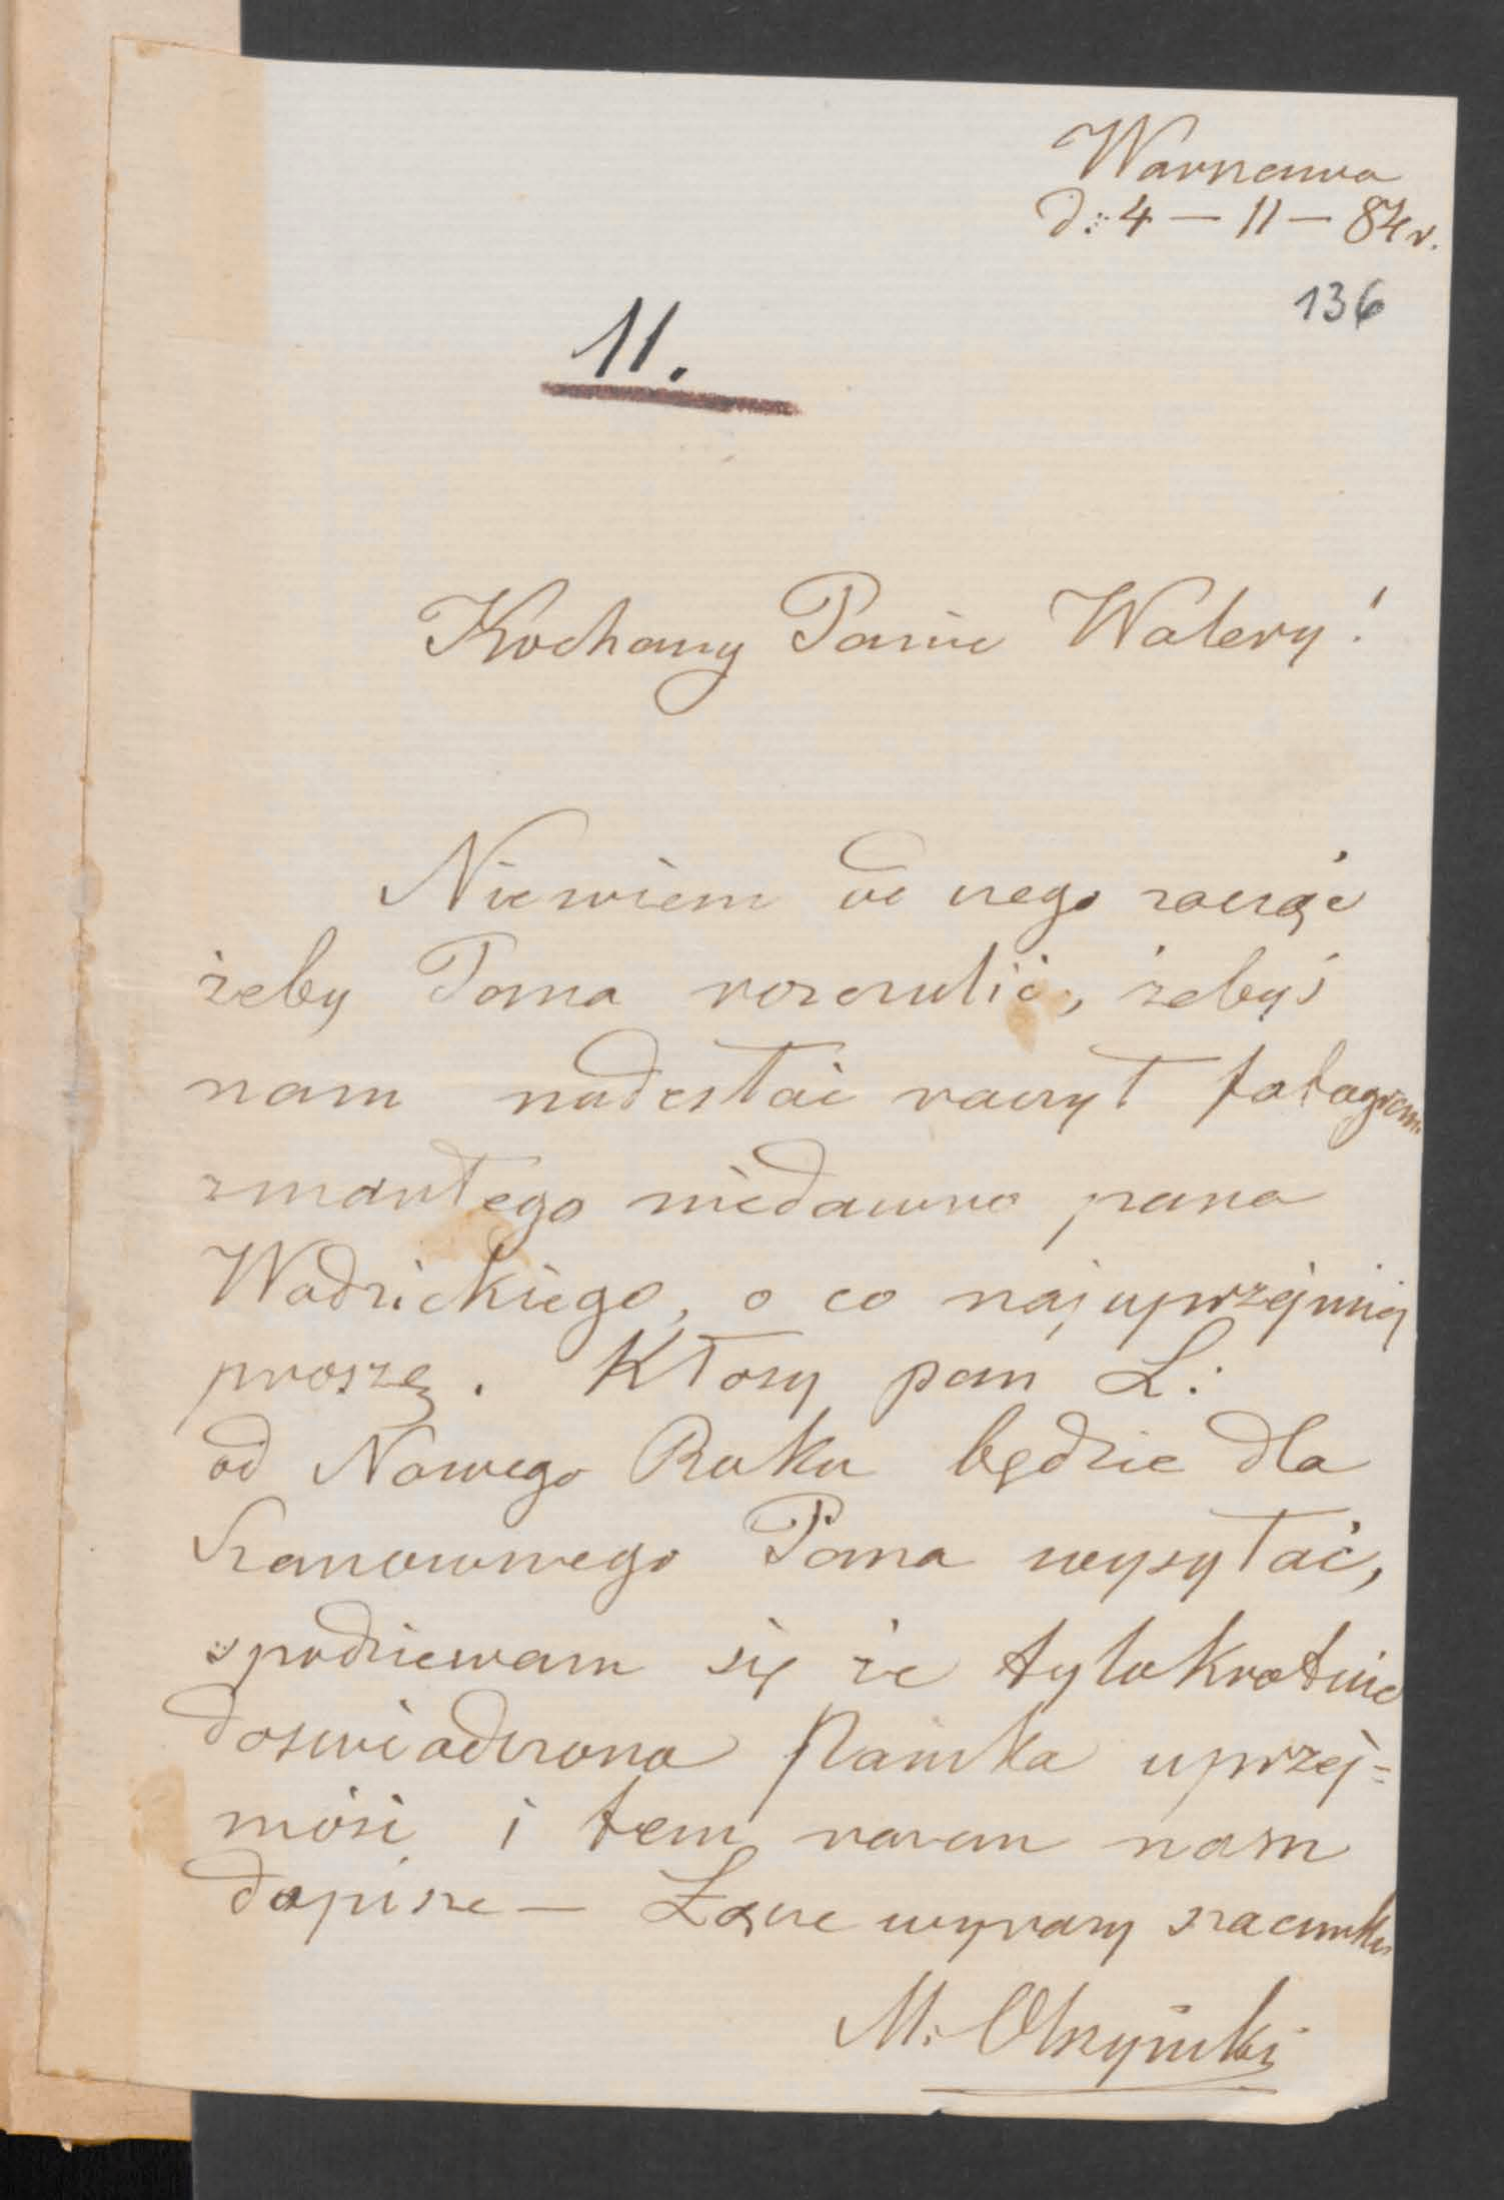 Warszawa
d: 4 — 11 — 84 r.
136
11.
Kochany Panie Walery!
Niewiem od czego zacząć
żeby Pana rozczulić, żebyś
nam nadesłać raczył
zmarłego niedawno pana
Wodzickiego, o co najuprzejmiej
proszę. Kłosy pan L:
od Nowego Roku będzie dla
Szanownego Pana wysyłać,
spodziewam się że tylokrotnie
doświadczona Pańska uprzej=
mość i tem razem nam
dopisze — Łączę wyrazy szacunku
M: Olszyński